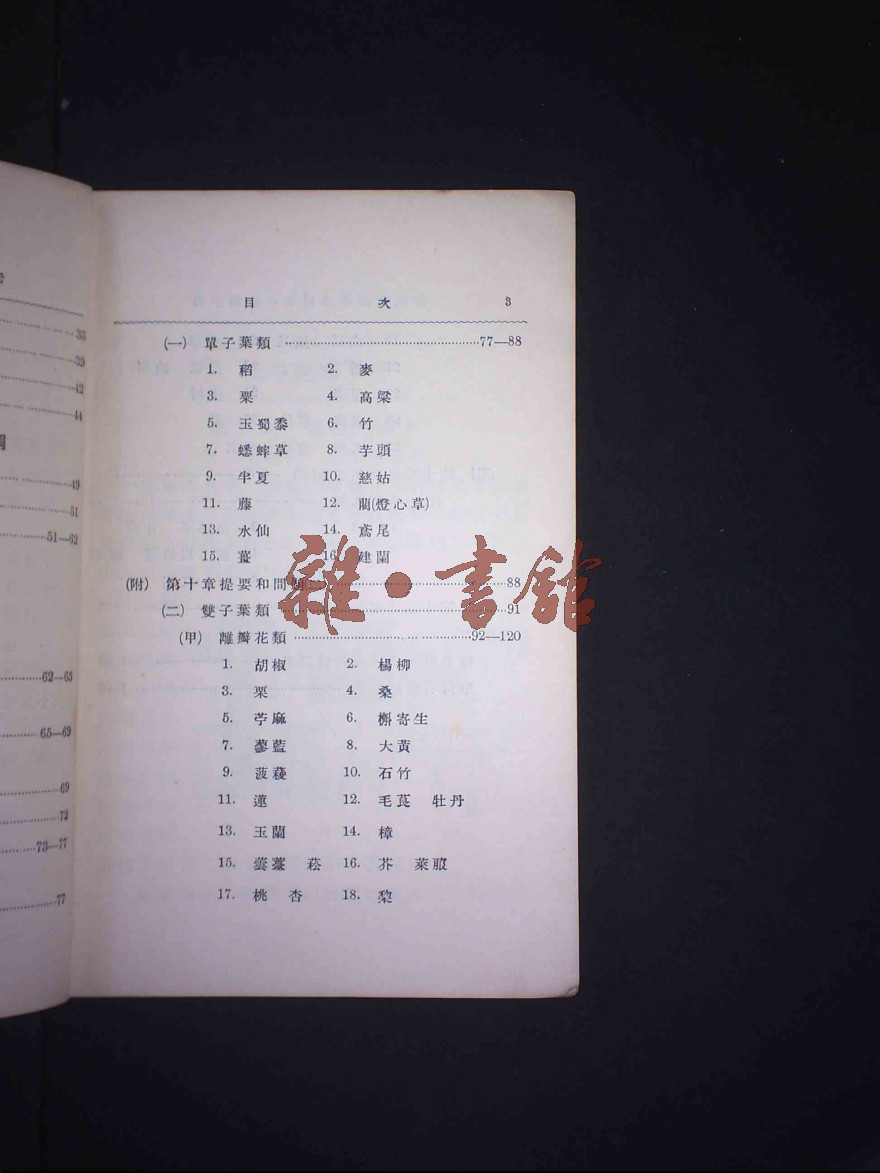 目 次 3
(一) 單子葉類 77—88
1. 稻 2. 麥
3. 粟 4. 高粱
5. 玉蜀黍 6. 竹
7. 蟋蟀草 8. 芋頭
9. 半夏 10. 慈姑
11. 藤 12. 藺(燈心草)
13. 水仙 14. 鳶尾
15. 薑 16. 建蘭
(附) 第十章提要和問題 88
(二) 雙子葉類 91
(甲) 離瓣花類 92—120
1. 胡椒 2. 楊柳
3. 栗 4. 桑
5. 苧麻 6. 槲寄生
7. 蓼藍 8. 大黃
9. 菠薐 10. 石竹
11. 蓮 12. 毛茛 牡丹
13. 玉蘭 14. 樟
15. 蕓薹 菘 16. 芥 萊菔
17. 桃 杏 18. 梨
雜·書館
35
39
42
44
49
51
51—62
62—65
65—69
69
72
73—77
77